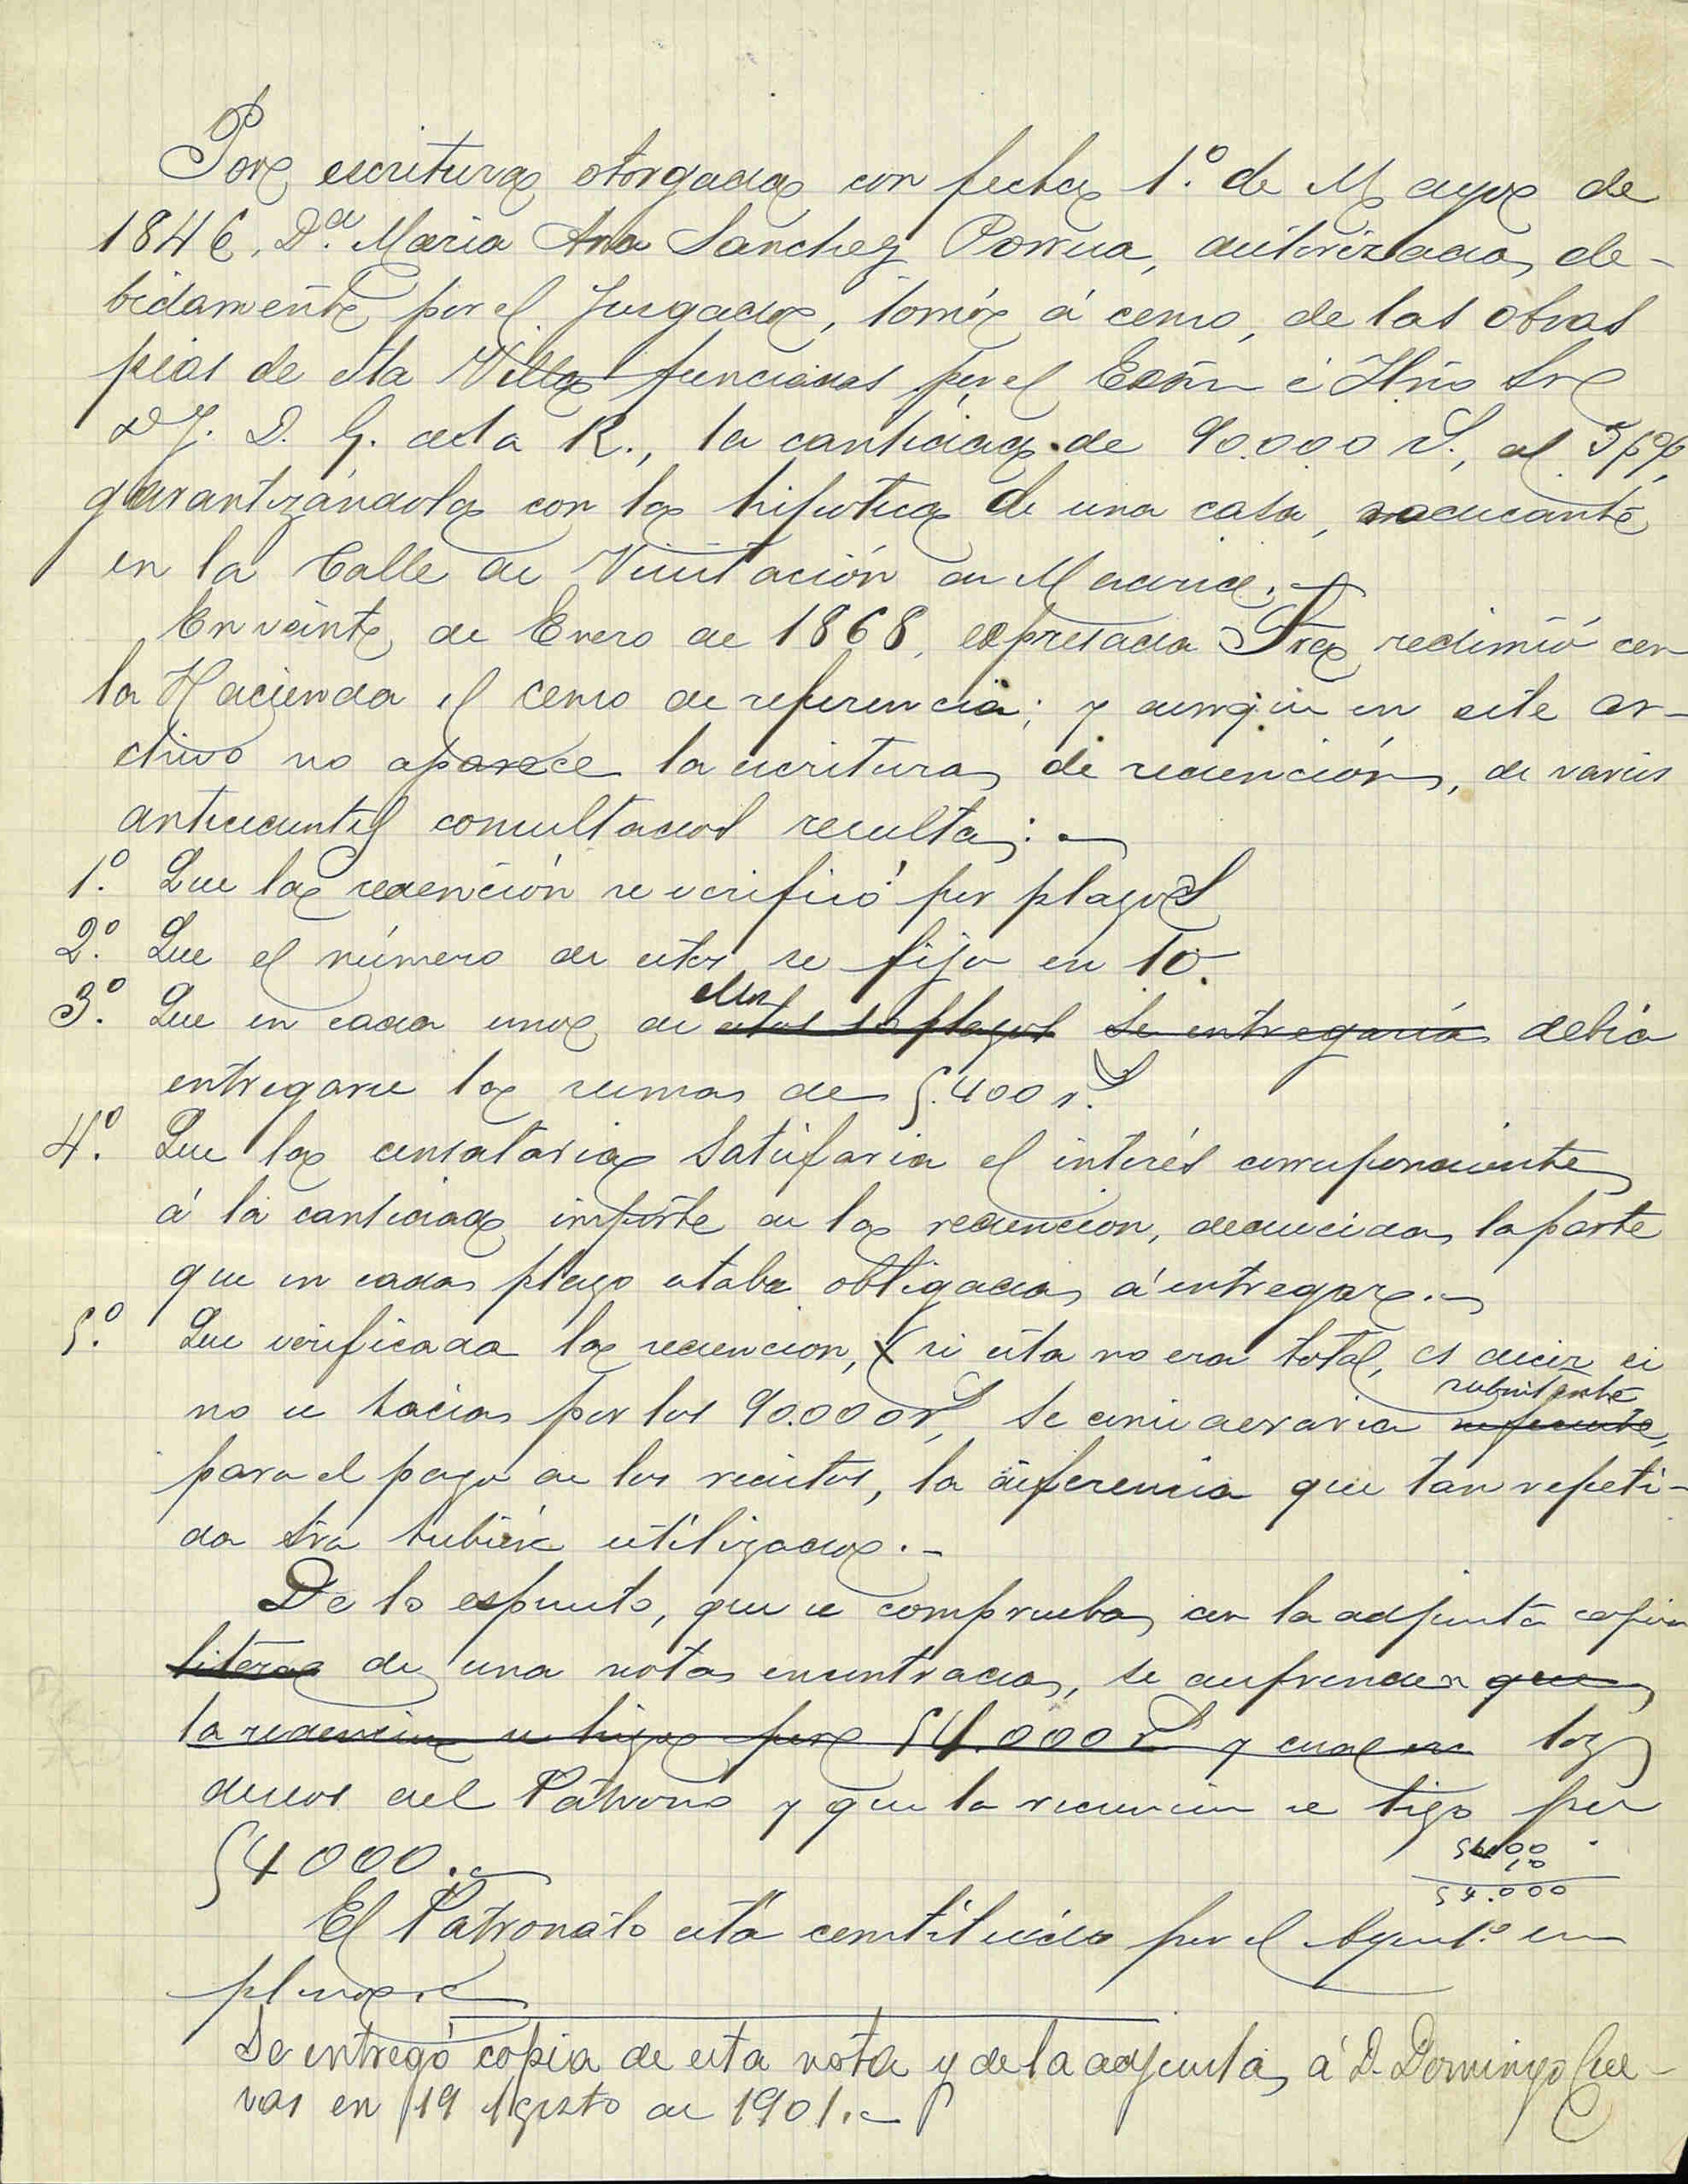 Por escritura otorgada con fecha 1.º de Mayo de
1846, D.ª Maria Ana Sanchez Porrua, autorizada de-
bidamente por el Juzgado, tomó á censo, de las obras
pias de esta Villa fundadas por el Excmo é Iltmo Sr
D. J. D. G. de la R., la cantidad de 90.000 rS., al 3 p%,
garantizándola con la hipoteca de una casa, radicante
en la Calle de Visitación de Madrid.
En veinte de Enero de 1868, expresada Sra redimió con
la Hacienda el censo de referencia; y aunque en este ar-
chivo no aparece la escritura de redención, de varios
antecedentes consultados resulta:
1.º Que la redención se verificó por plazos
2.º Que el número de estos se fijo en 10.
3.º Que en cada uno de ellos estos 10 plazos se entregaria debia
entregarse la suma de 5.400 rS.
4.º Que la censataria satisfaria el interés correspondiente
á la cantidad importe de la redencion, deducida la parte
que en cada plazo estaba obligada á entregar.
5.º Que verificada la redencion, (si esta no era total, es decir si
no se hacia por los 90.000 rS, se consideraria subsistente
para el pago de los reditos, la diferencia que tan repeti-
da Sra hubiere utilizado.
De lo espuesto, que se comprueba con la adjunta copia
literal de una nota encontrada, se desprenden que
la redencion se hizo por 54.000 rS y cual era los
deseos del Patrono y que la redencion se hizo por
54000.
5400
10
54.000
El Patronato está constituido por el Ayunt.º en
pleno.
Se entregó copia de esta nota y de la adjunta, á D. Domingo Cue-
vas en 19 Agosto de 1901.